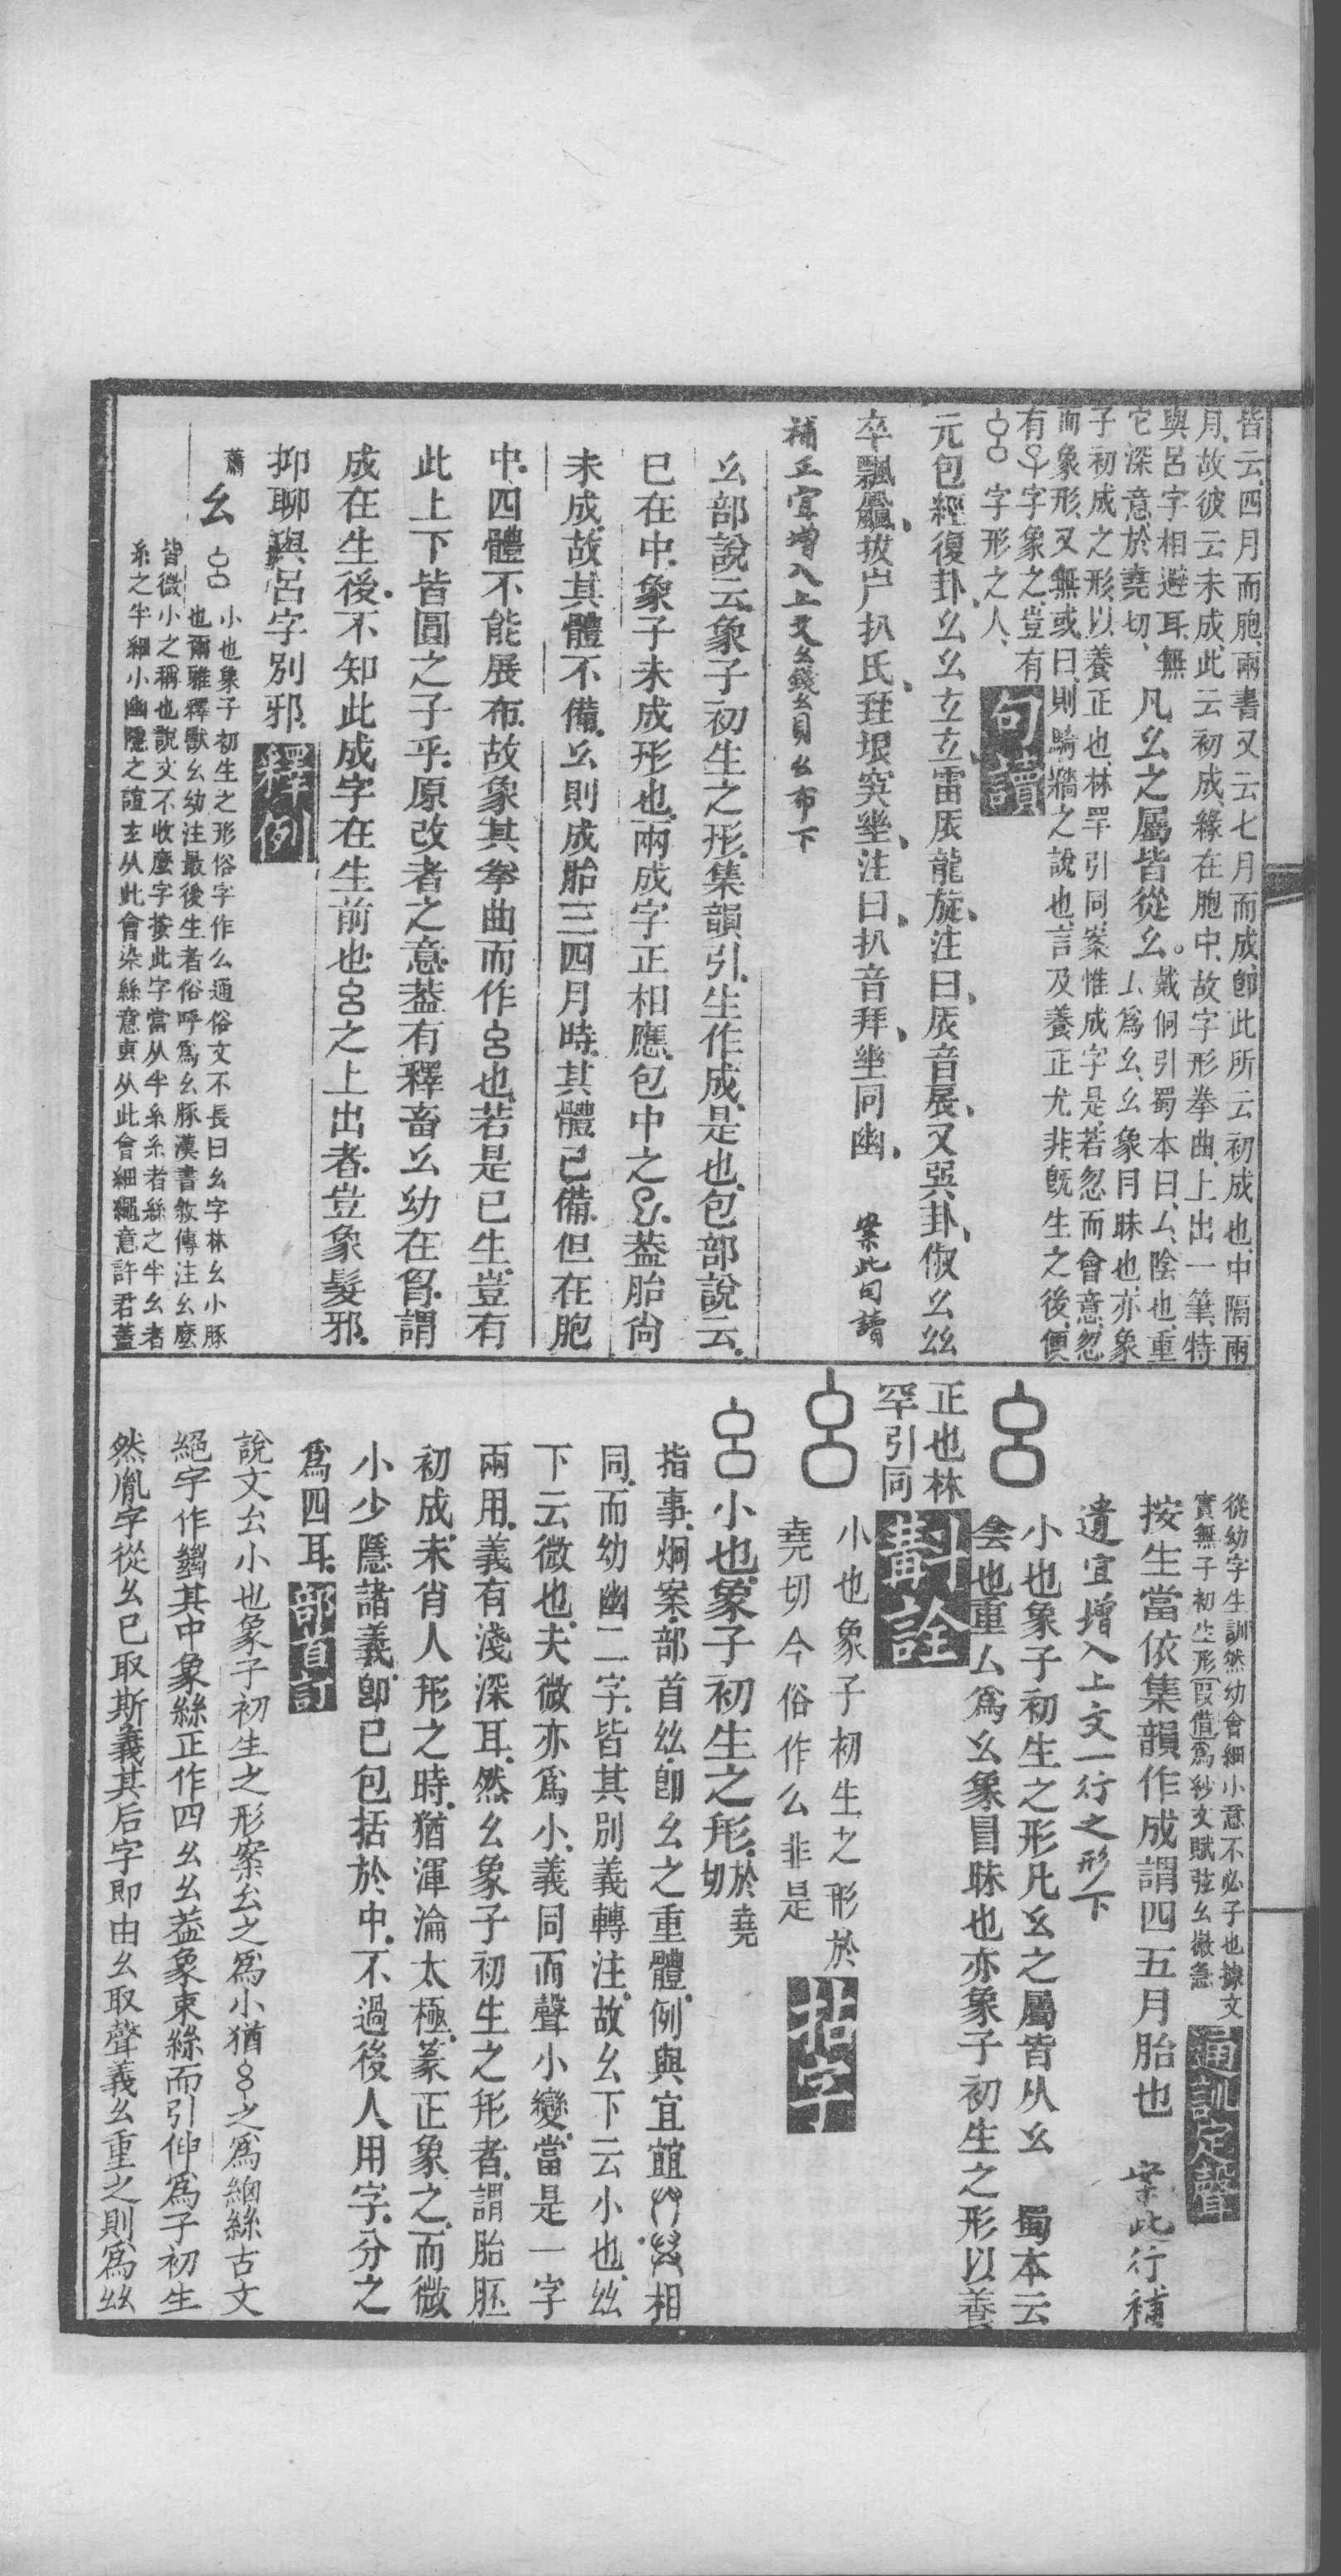 皆云四月而胞兩書又云七月而成卽此所云初成也中隔兩
月故彼云未成此云初成緣在胞中故字形拳曲上出一筆特
與呂字相避耳無
它深意於堯切
凡幺之屬皆從幺。
戴侗引蜀本曰厶陰也重
厶爲幺幺象冃昧也亦象
子初成之形以養正也林罕引同案惟成字是若忽而會意忽
而象形又無或曰則騎牆之說也言及養正尤非旣生之後便
有子字象之豈有
字形之人
句讀
元包經復卦幺幺玄玄雷㞡龍旋注曰㞡音展又巽卦俶幺𢆶
卒飄飍拔屵扒氏珡垠突𢆶注曰扒音拜𢆶同幽　案此句讀
補正宜增入上文幺錢幺貝幺布下
幺部說云象子初生之形集韻引生作成是也包部說云
已在中象子未成形也兩成字正相應包中之蓋胎尙
未成故其體不備幺則成胎三四月時其體已備但在胞
中四體不能展布故象其拳曲而作也若是已生豈有
此上下皆圓之子乎原改者之意蓋有釋畜幺幼在胷謂
成在生後不知此成字在生前也之上出者豈象髮邪
抑聊與呂字別邪
釋例
蕭
幺
小也象子初生之形俗字作么通俗文不長曰幺字林幺小豚
也爾雅釋獸幺幼注最後生者俗呼爲幺豚漢書敘傳注幺麼
皆微小之稱也說文不收麼字按此字當从半糸糸者絲之半幺者
糸之半細小幽隱之誼玄从此會染絲意叀从此會細繩意許君蓋
從幼字生訓然幼會細小意不必子也據文
實無子初生形叚借爲紗文賦弦幺徽急
通訓定聲
按生當依集韻作成謂四五月胎也　案此行補
遺宜增入上文一行之形下
小也象子初生之形凡幺之屬皆从幺　蜀本云
侌也重厶爲幺象冒昧也亦象子初生之形以養
正也林
罕引同
斠詮
小也象子初生之形於
堯切今俗作么非是
拈字
小也象子初生之形於堯
切
指事炯案部首𢆶卽幺之重體例與宜䛐相
同而幼幽二字皆其別義轉注故幺下云小也𢆶
下云微也夫微亦爲小義同而聲小變當是一字
兩用義有淺深耳然幺象子初生之形者謂胎胚
初成未肖人形之時猶渾淪太極篆正象之而微
小少隱諸義卽已包括於中不過後人用字分之
爲四耳
部首訂
說文幺小也象子初生之形案幺之爲小猶之爲細絲古文
絕字作𢇍其中象絲正作四幺幺蓋象束絲而引伸爲子初生
然胤字從幺已取斯義其后字即由幺取聲義幺重之則爲𢆶